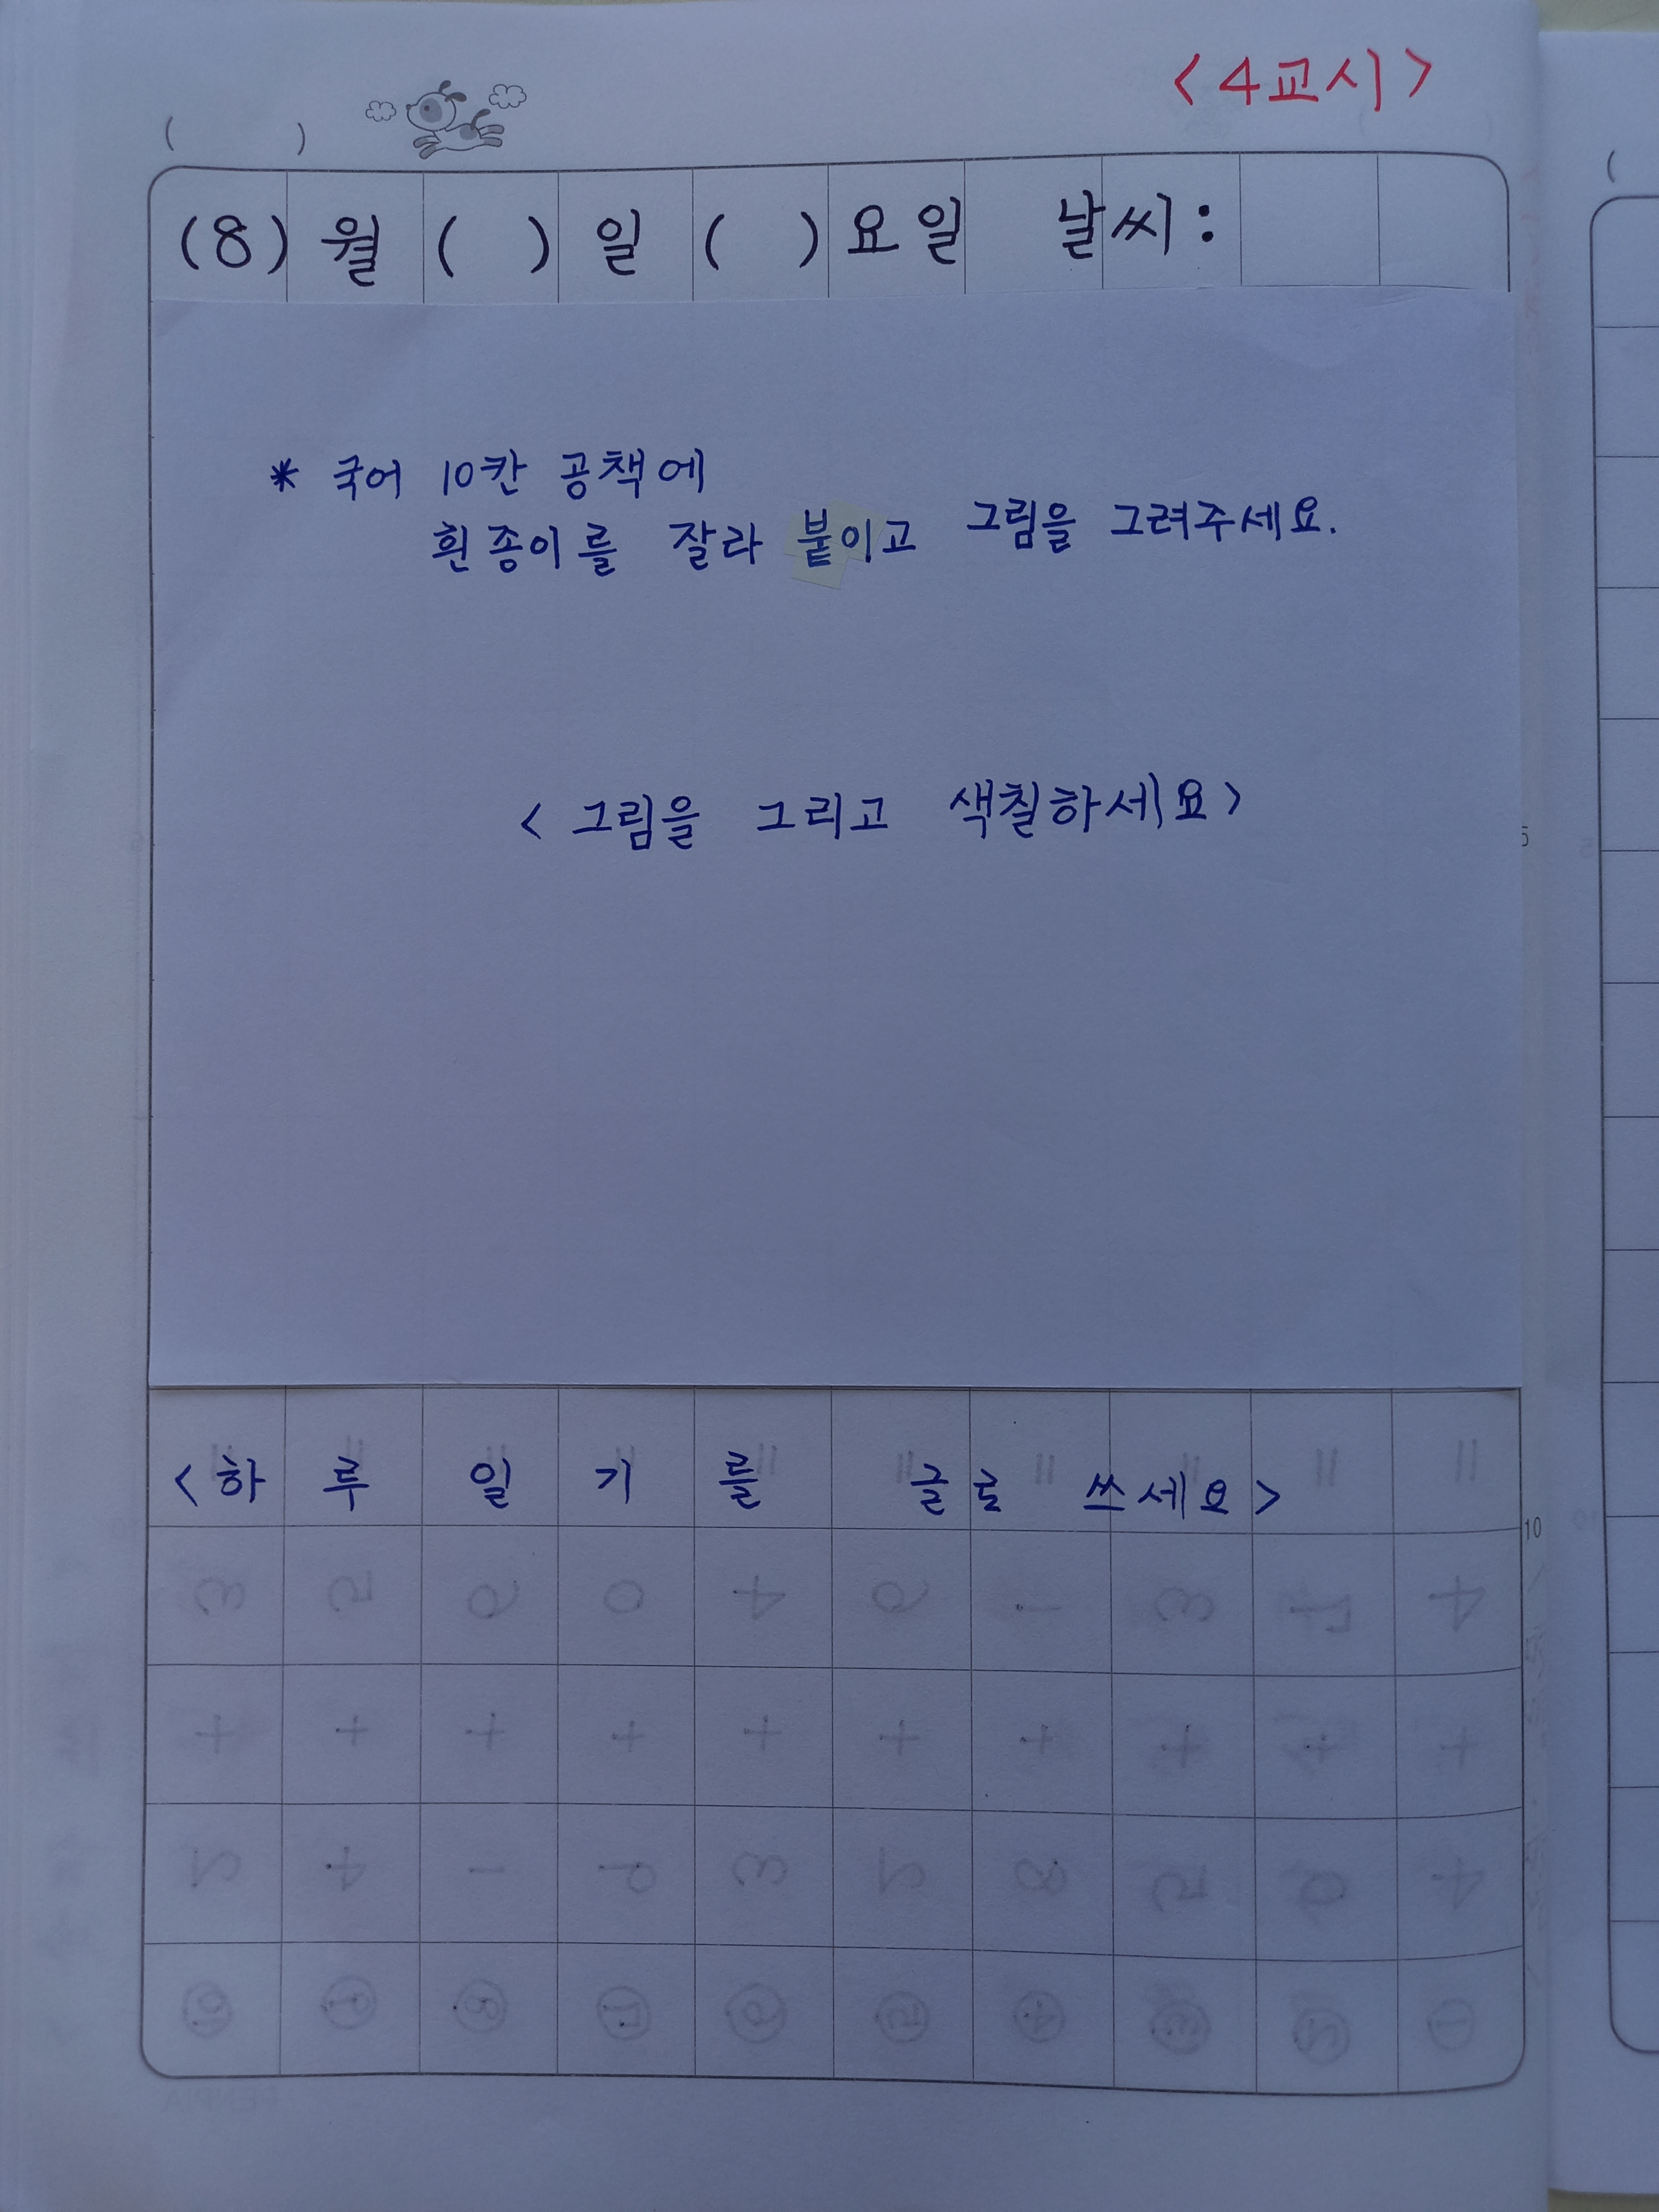 <4교시>
( )
(8) 월 ( ) 일 ( ) 요일 날씨:
* 국어 10칸 공책에
흰 종이를 잘라 붙이고 그림을 그려주세요.
<그림을 그리고 색칠하세요>
5
<하루 일기를 글로 쓰세요>
10